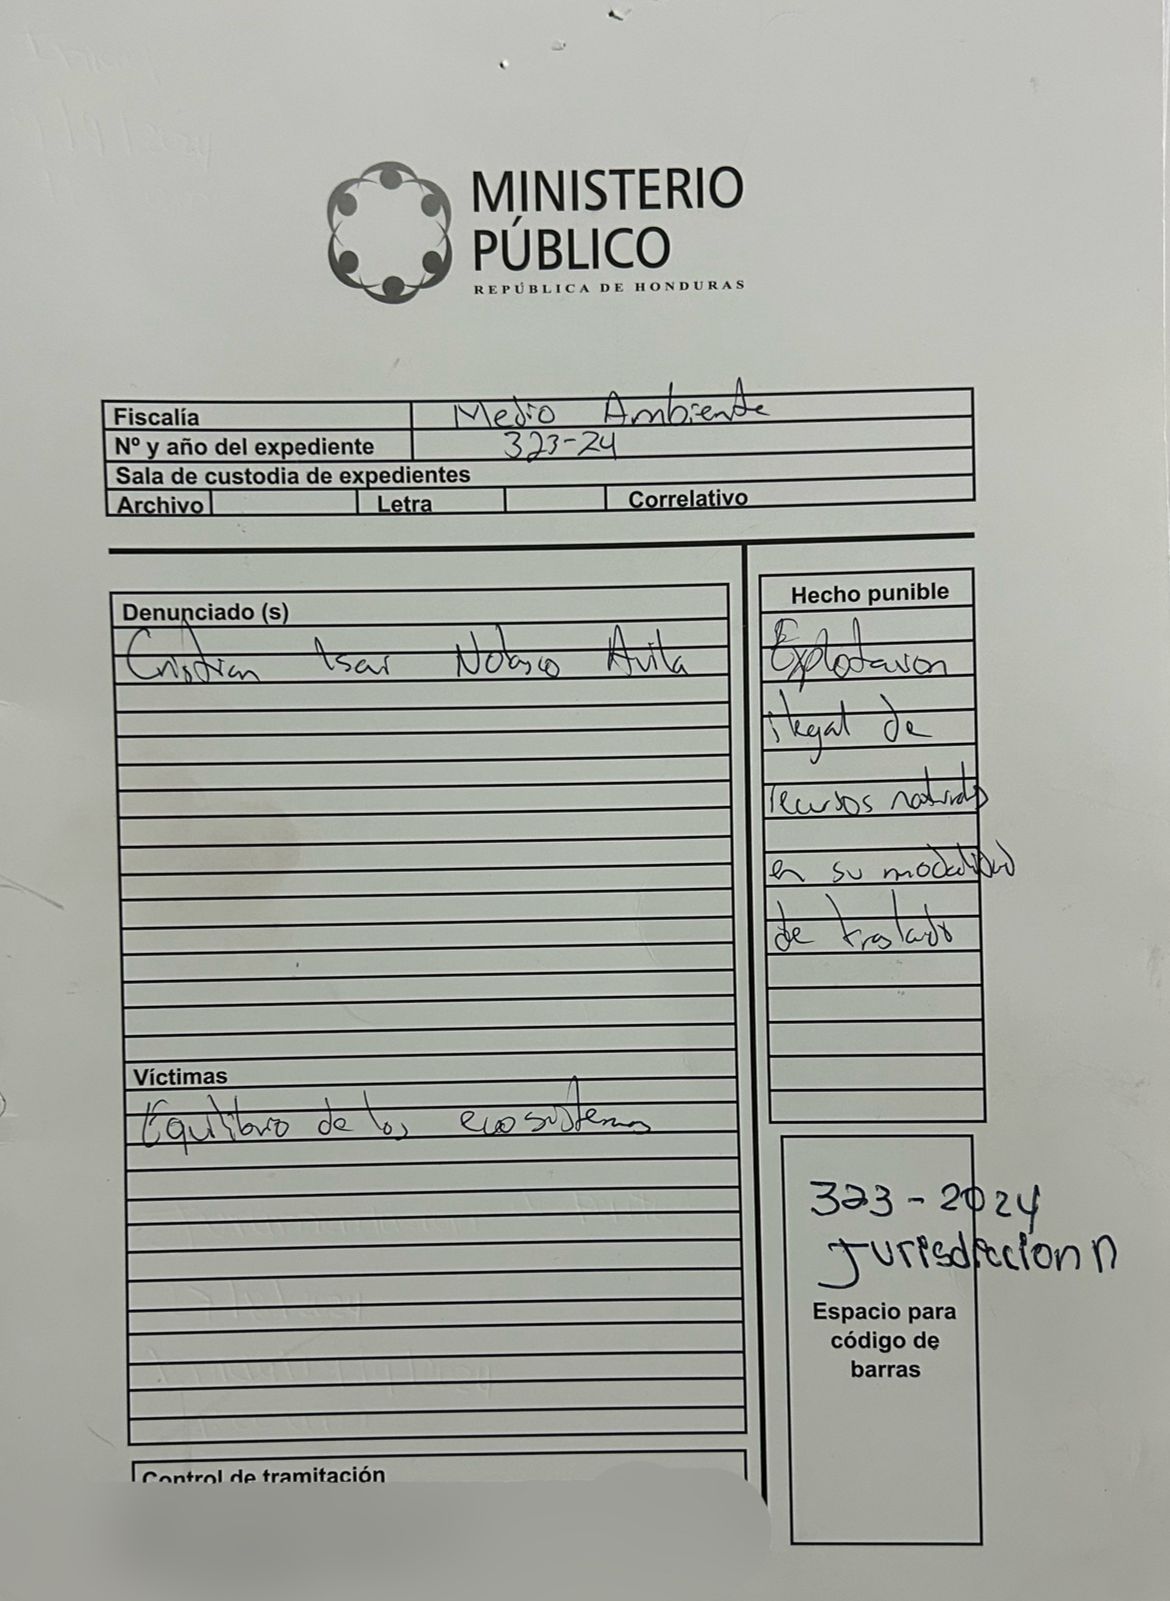 MINISTERIO
PÚBLICO
REPÚBLICA DE HONDURAS
Fiscalía Medio Ambiente
Nº y año del expediente 323-24
Sala de custodia de expedientes
Archivo Letra Correlativo
Denunciado (s)
Cristian Isai Nolasco Avila
Hecho punible
Explotacion
ilegal de
recursos naturales
en su modalidad
de traslado
Víctimas
Equilibrio de los ecosistemas
323-2024
Jurisdiccion n
Espacio para
código de
barras
Control de tramitación